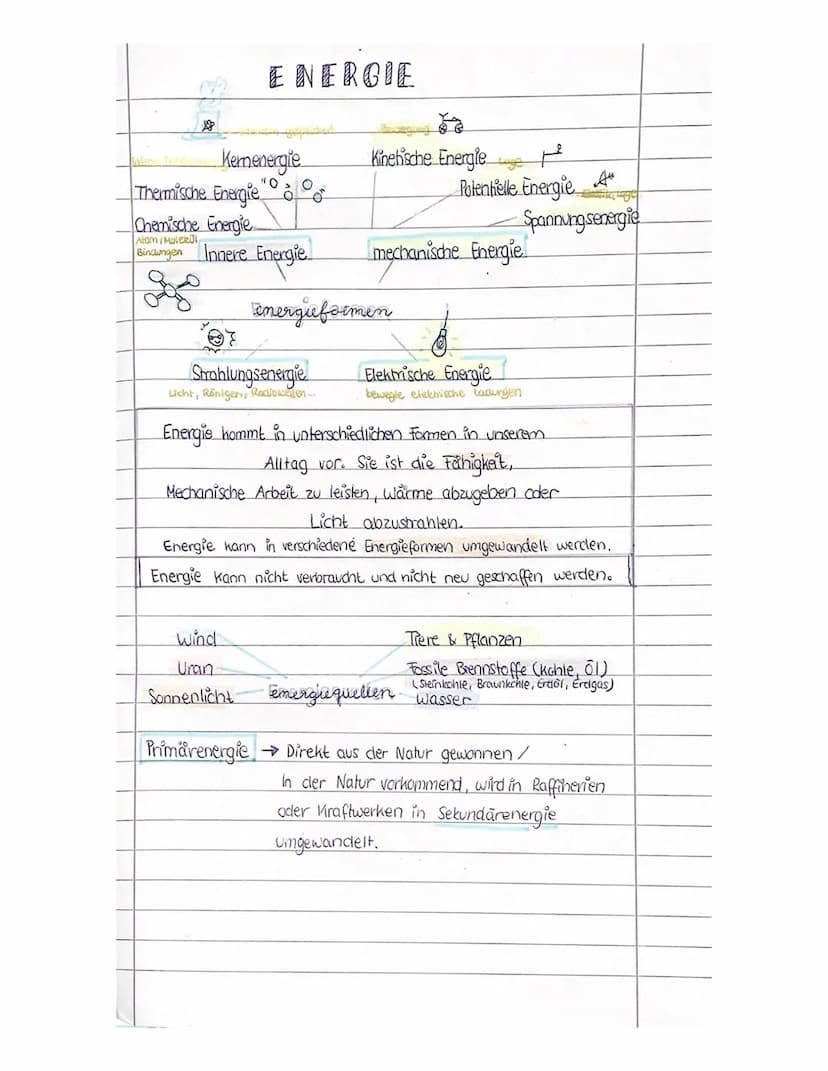 ENERGIE
Bewegung
Kernenergie
Kinetische Energie
Lage
Thermische Energie
Potentielle Energie
Chemische Energie
Spannungsenergie
Atom / Molekül
Bindungen
Innere Energie
mechanische Energie
Energieformen
Strahlungsenergie
Elektrische Energie
Licht, Röntgen, Radiowellen...
bewegte elektrische Ladungen
Energie kommt in unterschiedlichen Formen in unserem
Alltag vor. Sie ist die Fähigkeit,
Mechanische Arbeit zu leisten, Wärme abzugeben oder
Licht abzustrahlen.
Energie kann in verschiedene Energieformen umgewandelt werden.
Energie kann nicht verbraucht und nicht neu geschaffen werden.
Wind
Tiere & Pflanzen
Uran
Fossile Brennstoffe (Kohle, Öl)
(Steinkohle, Braunkohle, Erdöl, Erdgas)
Sonnenlicht
Energiequellen
Wasser
Primärenergie → Direkt aus der Natur gewonnen /
In der Natur vorkommend, wird in Raffinerien
oder Kraftwerken in Sekundärenergie
umgewandelt.